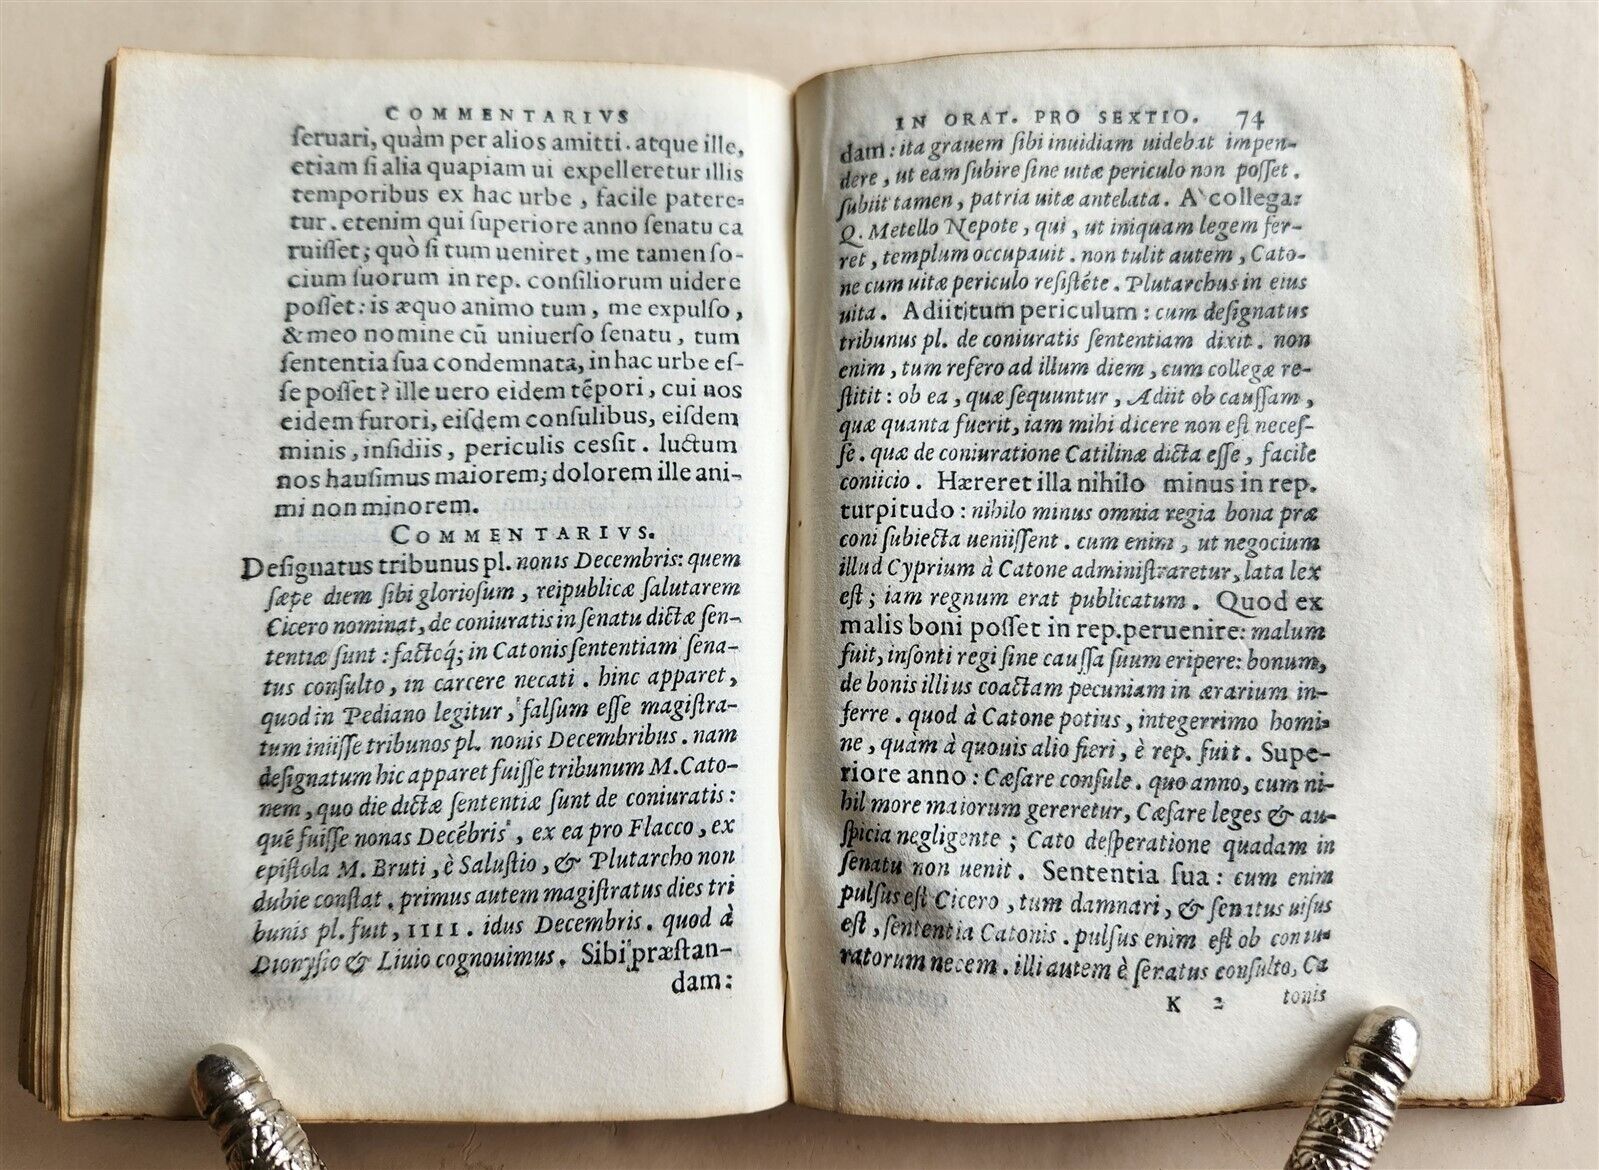 COMMENTARIVS
seruari, quàm per alios amitti. atque ille,
etiam si alia quapiam ui expelleretur illis
temporibus ex hac urbe, facile patere-
tur. etenim qui superiore anno senatu ca
ruisset; quò si tum ueniret, me tamen so-
cium suorum in rep. consiliorum uidere
posset: is æquo animo tum, me expulso,
& meo nomine cũ uniuerso senatu, tum
sententia sua condemnata, in hac urbe es-
se posset? ille uero eidem tẽpori, cui nos
eidem furori, eisdem consulibus, eisdem
minis, insidiis, periculis cessit. luctum
nos hausimus maiorem; dolorem ille ani-
mi non minorem.
COMMENTARIVS.
Designatus tribunus pl. nonis Decembris: quem
sæpe diem sibi gloriosum, reipublicæ salutarem
Cicero nominat, de coniuratis in senatu dictæ sen-
tentiæ sunt: factoq́; in Catonis sententiam sena-
tus consulto, in carcere necati. hinc apparet,
quod in Pediano legitur, falsum esse magistra-
tum iniisse tribunos pl. nonis Decembribus. nam
designatum hic apparet fuisse tribunum M. Cato-
nem, quo die dictæ sententiæ sunt de coniuratis:
quẽ fuisse nonas Decẽbris, ex ea pro Flacco, ex
epistola M. Bruti, è Salustio, & Plutarcho non
dubie constat. primus autem magistratus dies tri
bunis pl. fuit, IIII. idus Decembris. quod à
Dionysio & Liuio cognouimus. Sibi præstan-
dam:
IN ORAT. PRO SEXTIO. 74
dam: ita grauem sibi inuidiam uidebat impen-
dere, ut eam subire sine uitæ periculo non posset.
subiit tamen, patria uitæ antelata. A collega:
Q. Metello Nepote, qui, ut iniquam legem fer-
ret, templum occupauit. non tulit autem, Cato-
ne cum uitæ periculo resistẽte. Plutarchus in eius
uita. Adiit tum periculum: cum designatus
tribunus pl. de coniuratis sententiam dixit. non
enim, tum refero ad illum diem, cum collegæ re-
stitit: ob ea, quæ sequuntur, Adiit ob caussam,
quæ quanta fuerit, iam mihi dicere non est neces-
se. quæ de coniuratione Catilinæ dicta esse, facile
coniicio. Hæreret illa nihilo minus in rep.
turpitudo: nihilo minus omnia regia bona præ
coni subiecta ueniissent. cum enim, ut negocium
illud Cyprium à Catone administraretur, lata lex
est; iam regnum erat publicatum. Quod ex
malis boni posset in rep. peruenire: malum
fuit, insonti regi sine caussa suum eripere: bonum,
de bonis illius coactam pecuniam in ærarium in-
ferre. quod à Catone potius, integerrimo homi-
ne, quam à quouis alio fieri, è rep. fuit. Supe-
riore anno: Cæsare consule. quo anno, cum ni-
hil more maiorum gereretur, Cæsare leges & au-
spicia negligente; Cato desperatione quadam in
senatu non uenit. Sententia sua: cum enim
pulsus est Cicero, tum damnari, & senatus uisus
est, sententia Catonis. pulsus enim est ob coniu-
ratorum necem. illi autem è senatus consulto, Ca
K 2 tonis